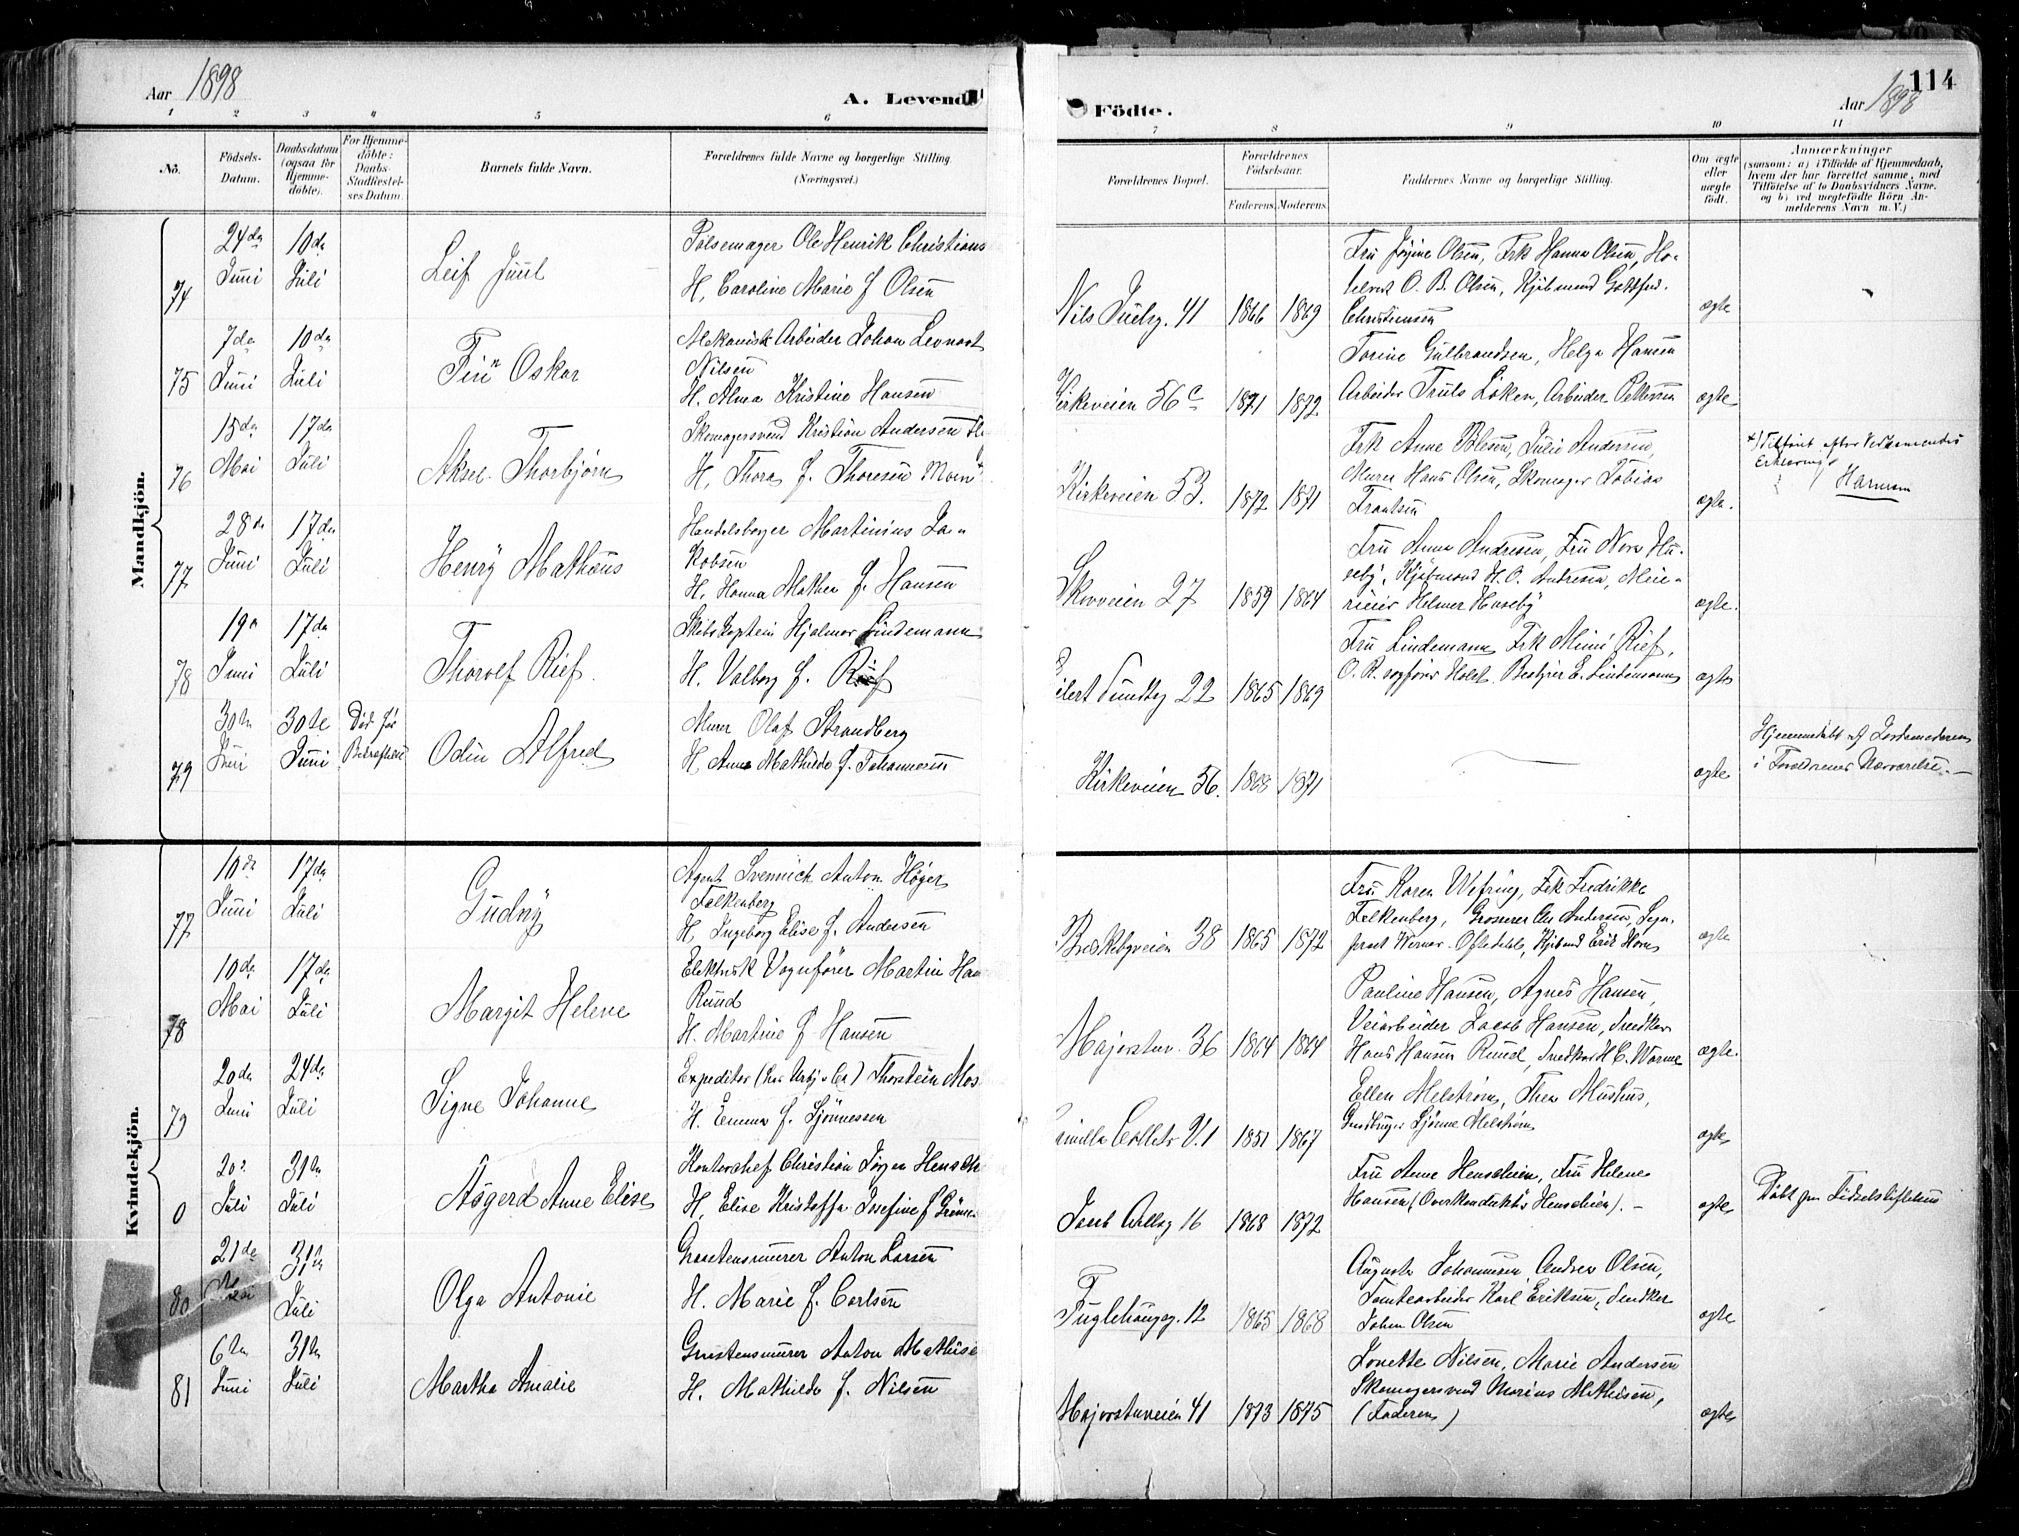 Aar 1898
A. Levend
Födte.
Aar 1898
114
1 2 3 4 5 6 7 8 9 10 11
No.
Födsels-
Datum.
Daabsdatum
(ogsaa för
Hjemme-
döbte).
For Hjemme-
döbte:
Daabs-
Stadfæstel-
ses Datum.
Barnets fulde Navn.
Forældrenes fulde Navne og borgerlige Stilling
(Næringsvei.)
Forældrenes Bopæl.
Forældrenes
Födselsaar.
Faderens. Moderens.
Faddernes Navne og borgerlige Stilling.
Om ægte
eller
uægte
födt.
Anmærkninger
(saasom: a) i Tilfælde af Hjemmedaab,
hvem der har forrettet samme, med
Tilföielse af to Daabsvidners Navne.
og b) ved uægtefödte Börn An-
melderens Navn m. V.)
Mandkjön.
74
24de
Juni
10de
Juli
Leif Juul
Pølsemager Ole Henrik Christians
H. Caroline Marie f Olsen
Nils Juelsg. 41
1866 1869
Fru Jørgine Olsen, Frk Hanna Olsen,
O. B. Olsen, Kjøbmand
Christiansen
ægte
75
7de
Juni
10de
Juli
Finn Oskar
Mekanisk Arbeider Johan Lennart
Nilsen
H. Alma Kristine Hansen
Kirkeveien 56c
1871 1872
Torine Gulbrandsen, Helga Hansen
Arbeider Truls Løken, Arbeider Pettersen
ægte
76
15de
Mai
17de
Juli
Aksel Thorbjørn
Skomagersvend Kristian Andersen
H. Thora f. Thoresen Moen
Kirkeveien 53.
1872 1871
Frk Anne Olesen, Julie Andersen,
Murer Hans Olsen, Skomager Tobias
Frantsen
ægte.
Tilføiet efter Vedkommendes
Erklæring
Hansson
77
28de
Juni
17de
Juli
Henry Mathæus
Handelsborger Martinius Ja-
kobsen
H. Hanna Mathea f. Hansen
Skovveien 27
1859 1864
Fru Anna Andresen, Fru Nora Hu-
seby, Kjøbmand H. O. Andresen, Mei-
rieier Helmer Huseby
ægte.
78
19de
Juni
17de
Juli
Thorolf Rief.
Skibskaptein Hjalmar Lindemann
H. Valborg f. Rief
Eilert Sundtsg 22
1865 1869
Fru Lindemann, Frk Mimi Rief,
O. R. sagfører Holst. Bestyrer E. Lindemann
ægte
79
30te
Juni
30te
Juni
Død før
Bekræftelse
Odin Alfred
Murer Olaf Strandberg
H. Anna Mathilde f. Johannesen
Kirkeveien 56.
1868 1871
ægte
Hjemmedøbt af Jordemoderen
i Forældrenes Nærværelse.
Kvindekjön.
77
10de
Juni
17de
Juli
Gudny
Agent Svennich Anton Høger
Falkenberg
H. Ingeborg Elise f. Andersen
Briskebyveien 38
1865 1872
Fru Karen Wefring, Frk Fredrikke
Falkenberg, Grosserer Chr Andersen, Sogne-
præst Werner Oftedahl, Kjøbmd Erik Horn
ægte
78
10de
Mai
17de
Juli
Margit Helene
Elektrisk Vognfører Martin Han
Ruud
H. Martine f Hansen
Majorstuv. 36
1864 1864
Pauline Hansen, Agnes Hansen,
Veiarbeider Jacob Hansen, Snedker
Hans Hansen Ruud, Snedker H. C. Warme
ægte.
79
20de
Juni
24de
Juli
Signe Johanne
Expeditør Thorstein Mos
H. Emma f. Sjønnessen
Camilla Colletts V. 1
1851 1867
Ellen Melstrøm, Thea Mushus,
Gaardbruger Sjønne Melstrøm
ægte
0
20de
Juli
31te
Juli
Aasgerd Anne Elise
Kontorchef Christian Jørgen Hensch
H. Elise Kristoffa Josefine f Grønn
Jacob Aallsg 16
1868 1872
Fru Anne Henschien, Fru Helene
Hansen (Overkonduktør Henschien). -
ægte
Døbt paa Fødselsstiftelsen
80
21de
Mai
31te
Juli
Olga Antonie
Graastensmurer Anton Larsen
H. Marie f. Carlsen
Fuglehaugg. 12
1865 1868
Augusta Johannesen Andrea Olsen,
Tomtearbeider Karl Eriksen, Snedker
Johan Olsen
ægte
81
6te
Juni
31te
Juli
Martha Amalie
Graastensmurer Anton Mathise
H. Mathilde f. Nilsen
Majorstuveien 41
1873 1875
Jonette Nilsen, Marie Andersen
Skomagersvend Marius Mathisen,
(Faderen)
ægte